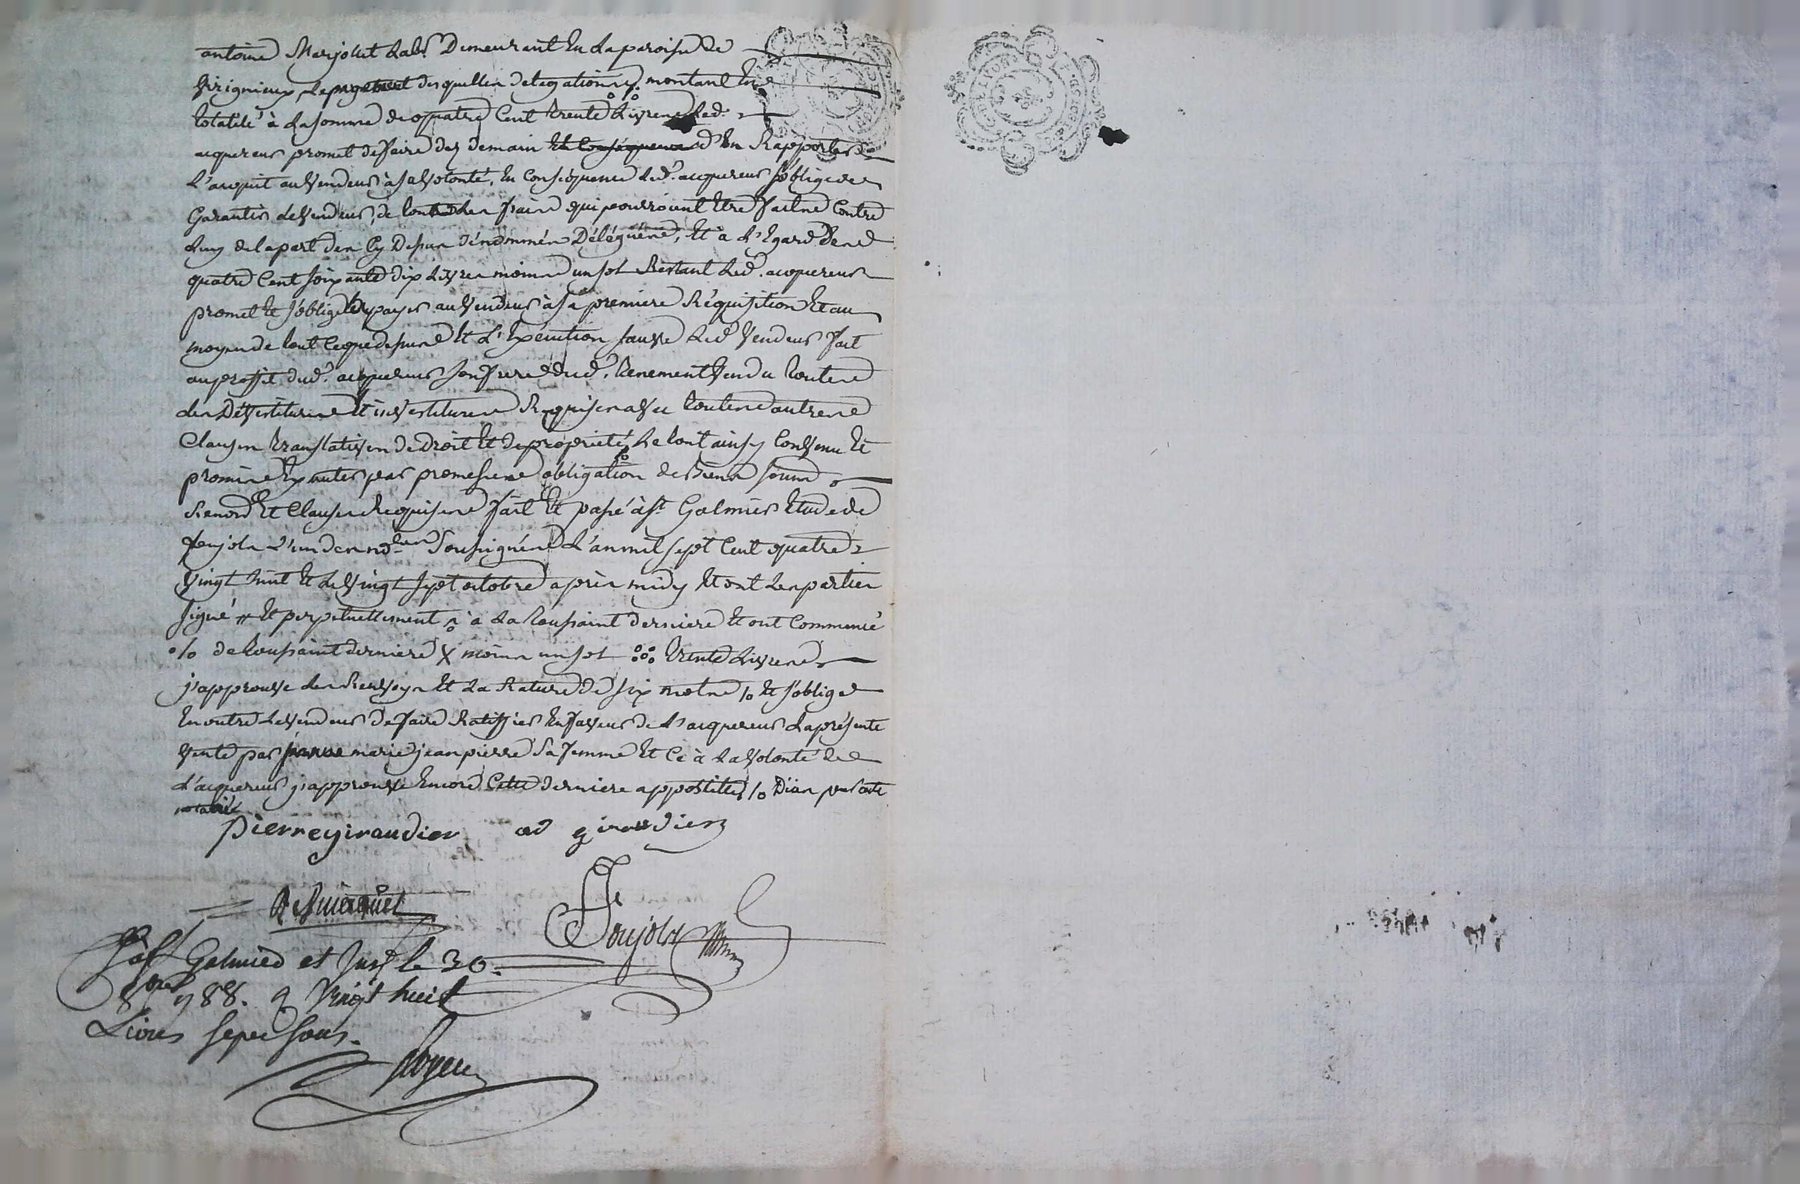 antoine Marjollet Lab.r Demeurant En La paroisse de
Virignieux, Le payement desquelles délégations montant En
totalité à La somme de quatre Cent trente Livres Led.
acquereur promet de faire dez demain Et Conséquence d'En Rapporter
L'acquit au Vendeur à sa Volonté, En Conséquence Led. acquereur s'oblige de
Garantir Le Vendeur, de tous Les frais qui pourroient Etre faits Contre
Luy de la part des Cy Dessus dénommés Délégués, Et à L'Egard des
quatre Cent soixante dix Livres moins un sol Restant Led. acquereur
promet Et s'oblige de payer au Vendeur à sa premiere Réquisition Et au
moyen de tout Ce que dessus Et L'Exécution sauve Led. Vendeur s'est
au proffit dud. acquereur dud. tenement Vendu toutes
Les Dévestitures Et investitures Requises avec toutes autres
Clauses translatives de Droit Et de propriété, Le tout ainsy Convenu Et
promis Exécuter par promesses obligation de Biens soumis
Renon.on Et Clauses Requises fait Et passé à S.t Galmier Etude de
Poujola L'un des no.res Soussignés L'an mil sept Cent quatre
Vingt huit Et Le Vingt sept octobre après midy Et ont Les parties
signé // Et perpetuellement à La toussaint derniere Et ont Commencé
% de toussaint derniere X moins un sol trente Livres
j'approuve Les Renvoys Et La Rature de six mots % Et s'oblige
En outre Le Vendeur de faire Ratiffier En faveur de L'acquereur La présente
Vente par marie jeanpierre Sa femme Et Ce à La Volonté de
L'acquereur j'approuve Encore Cette derniere appostille %
pierre giraudier ad giraudier
Poujola
à S.t Galmier et Jns.é le 30.
8bre 1788. R Vingt huit
Livres Sept Sous.